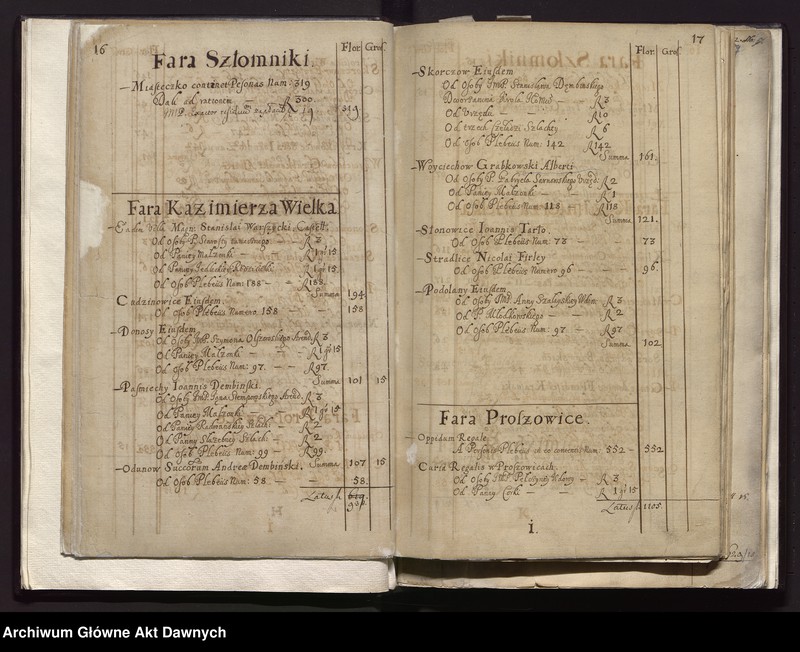 16
Flor. Gros.
Fara Szłomniki.
Miasteczko continet Pesonas Num: 319
Dali ad rationem — R 300
R 19 319
Fara Kazimierza Wielka
Eadem Villa Magn: Stanislai Warszycki Castell:
Od Osoby P. Starosty — R 3
Od Paniey Małżonki — R 1 gr 15
Od Panny — R 1 gr 15
Od Osob Plebeus Num: 188 — R 188.
Summa 194
Cudzinowice Eiusdem
Od Osob Plebeus Numero 158 — 158
Donosy Eiusdem
Od Osoby ImP. Szymona Olszewskiego Arend. R 3
Od Paniey Małżonki — R 1 gr 15
Od Osob Plebeus Num: 97. — R 97.
Summa 101 15
Paśmiechy Ioannis Dembinski.
Od Osoby ImP. Jana Stempowskiego Arend. R 3
Od Paniey Małżonki — R 1 gr 15
Od Paniey Szlachcianki R 2
Od Panny Służebney Szlach: R 2
Od Osob Plebeus Num: 99 — R 99.
Summa 107 15
Odunow Succorum Andreæ Dembinski.
Od Osob Plebeus Num: 58 — 58.
Latus f.
17
Flor. Gros.
Skorczow Eiusdem
Od Osoby ImP. Stanisława Dymbinskiego
Dworzanina Krola JoMości — R 3
Od Urzędu — R 10
Od trzech Czeladzi Szlachty R 6
Od Osob Plebeus Num: 142 R 142
Summa 161.
Woyciechow Grabkowski Alberti
Od Osoby P. Gabryela Sarnowskiego Urzęd: R 2
Od Paniey Małżonki — R 1
Od Osob Plebeus Num: 118 — R 118
Summa 121.
Stonowice Ioannis Tarło.
Od Osob Plebeus Num: 73 — 73
Stradlice Nicolai Firley
Od Osob Plebeus Numero 96 — 96.
Podolany Eiusdem
Od Osoby ImP. Anny Szalapskiey Wdow: R 3
Od P. Młodkowskiego — R 2
Od Osob Plebeus Num: 97. — R 97
Summa 102.
Fara Proszowice.
Oppidum Regale
A Personis Plebeis in eo contentis Num: 552 — 552
Curia Regalis w Proszowicach.
Od Osoby ImP. Wdowy — R 3
Od Panny Corki — R 1 gr 15
Latus f. 1105.
I.
Archiwum Główne Akt Dawnych